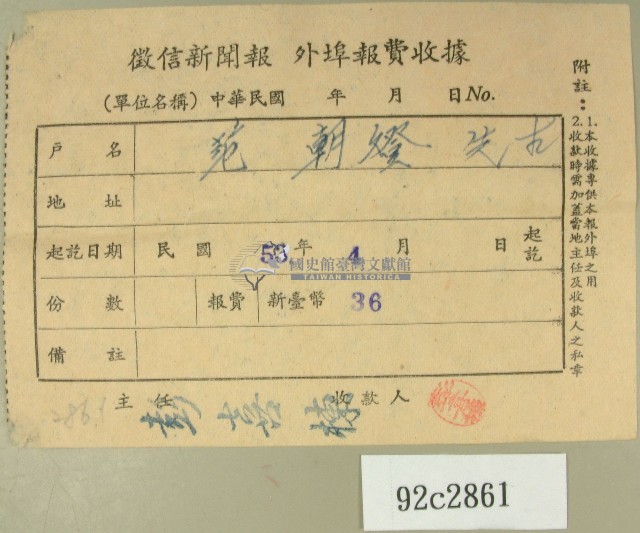 徵信新聞報 外埠報費收據
(單位名稱) 中華民國 年 月 日 No.
戶名 范朝燈 先生
地址
起訖日期 民國 53 年 4 月 日 起訖
份數 報費 新臺幣 36
備註
主任 收款人
附註：
1.本收據專供本報外埠之用
2.收款時需加蓋當地主任及收款人之私章
國史館臺灣文獻館
TAIWAN HISTORICA
92c2861